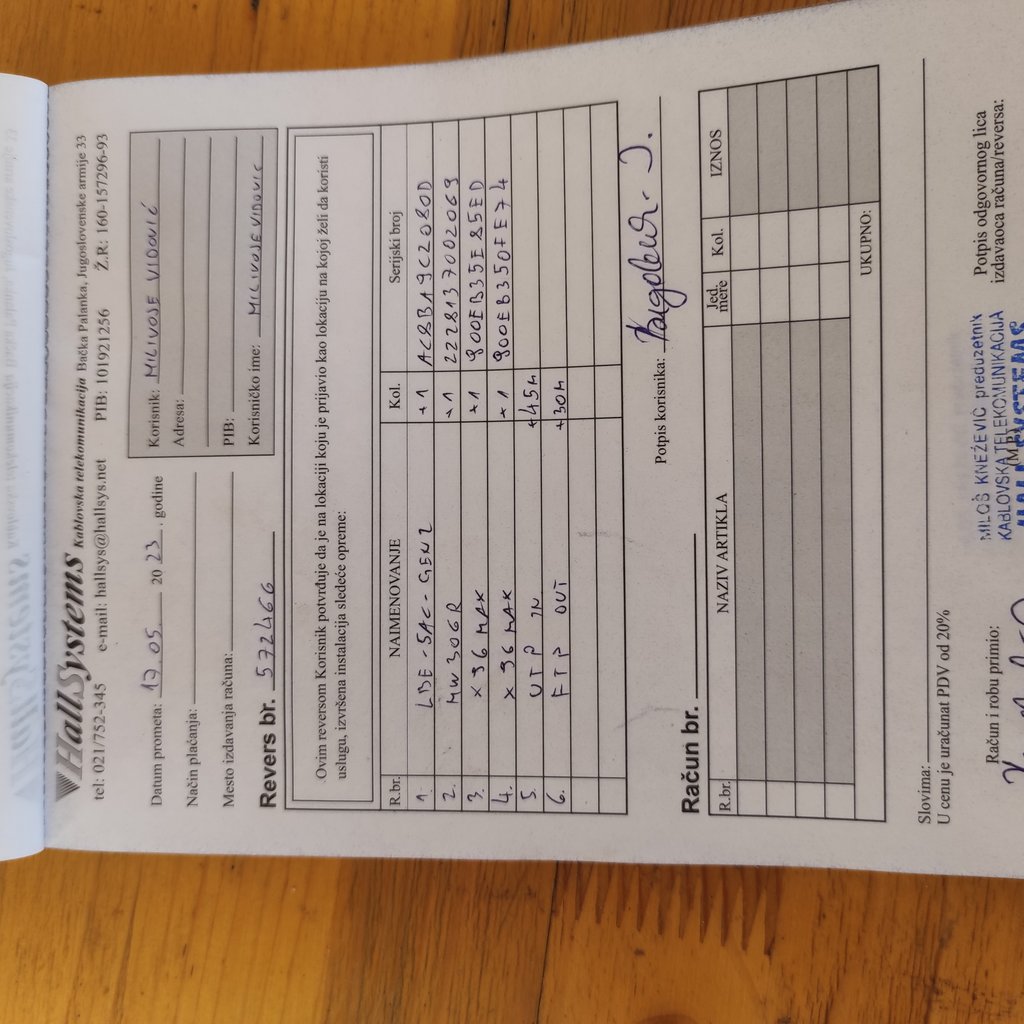 HallSystems Kablovska telekomunikacija Bačka Palanka, Jugoslovenske armije 33
tel: 021/752-345 e-mail: hallsys@hallsys.net PIB: 101921256 Ž.R: 160-157296-93
Datum prometa: 17.05. 2023. godine
Način plaćanja:
Mesto izdavanja računa:
Korisnik: MILIVOJE VIDOVIĆ
Adresa:
PIB:
Korisničko ime: MILIVOJEVIDOVIC
Revers br. 572466
Ovim reversom Korisnik potvrđuje da je na lokaciji koju je prijavio kao lokaciju na kojoj želi da koristi
uslugu, izvršena instalacija sledeće opreme:
R.br. NAIMENOVANJE Kol. Serijski broj
1. LBE-5AC-GEN2 +1 AC8BA9C2080D
2. MW306R +1 2228137002069
3. X96 MAX +1 900EB35E85ED
4. X96 MAX +1 900EB350FE74
5. UTP IN +45m
6. FTP OUT +30m
Potpis korisnika:
Račun br.
R.br. NAZIV ARTIKLA Jed. mere Kol. IZNOS
UKUPNO:
Slovima:
U cenu je uračunat PDV od 20%
Račun i robu primio:
Potpis odgovornog lica
izdavaoca računa/reversa:
MILOŠ KNEŽEVIĆ preduzetnik
KABLOVSKA TELEKOMUNIKACIJA
HALL SYSTEMS